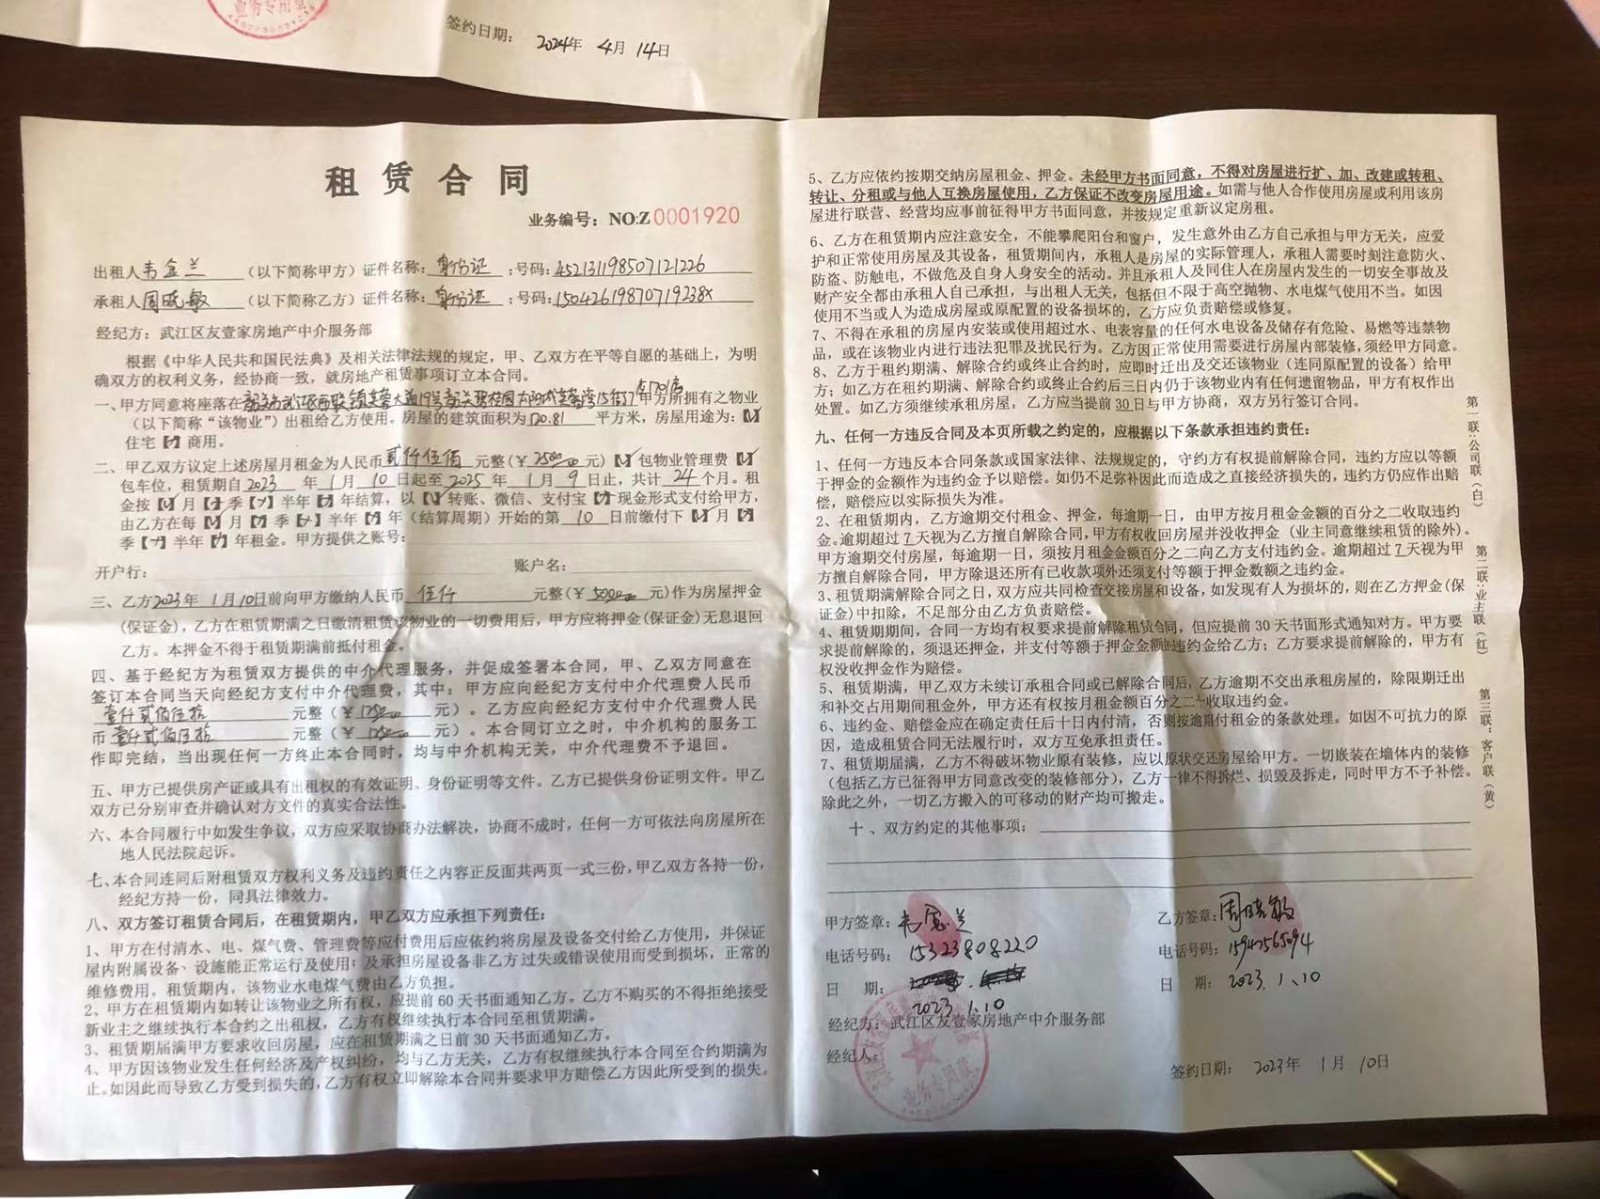 签约日期： 2024年 4月 14日
租 赁 合 同
业务编号：NO:Z0001920
出租人韦金兰（以下简称甲方）证件名称：身份证；号码：452131198507121226
承租人周晓敏（以下简称乙方）证件名称：身份证；号码：15042619870719238X
经纪方：武江区友壹家房地产中介服务部
根据《中华人民共和国民法典》及相关法律法规的规定，甲、乙双方在平等自愿的基础上，为明
确双方的权利义务，经协商一致，就房地产租赁事项订立本合同。
一、甲方同意将座落在韶关市武江区西联镇芙蓉大道19号韶关碧桂园 甲方所拥有之物业
（以下简称“该物业”）出租给乙方使用。房屋的建筑面积为120.81 平方米，房屋用途为：【√】
住宅【】商用。
二、甲乙双方议定上述房屋月租金为人民币贰仟伍佰 元整（￥2500 元）【√】包物业管理费【】
包车位，租赁期自2023 年 1月 10日起至2025 年 1月 9日止，共计 24 个月。租
金按【√】月【】季【】半年【】年结算，以【√】转账、微信、支付宝【】现金形式支付给甲方，
由乙方在每【√】月【】季【】半年【】年（结算周期）开始的第 10 日前缴付下【√】月【】
季【】半年【】年租金。甲方提供之账号：
开户行： 账户名：
三、乙方2023年 1月10日前向甲方缴纳人民币 伍仟 元整（￥5000 元)作为房屋押金
(保证金)，乙方在租赁期满之日缴清租赁该物业的一切费用后，甲方应将押金(保证金)无息退回
乙方。本押金不得于租赁期满前抵付租金。
四、基于经纪方为租赁双方提供的中介代理服务，并促成签署本合同，甲、乙双方同意在
签订本合同当天向经纪方支付中介代理费，其中：甲方应向经纪方支付中介代理费人民币
壹仟贰佰伍拾 元整（￥1250 元）。乙方应向经纪方支付中介代理费人民
币 壹仟贰佰伍拾 元整（￥1250 元）。本合同订立之时，中介机构的服务工
作即完结，当出现任何一方终止本合同时，均与中介机构无关，中介代理费不予退回。
五、甲方已提供房产证或具有出租权的有效证明、身份证明等文件。乙方已提供身份证明文件。甲乙
双方已分别审查并确认对方文件的真实合法性。
六、本合同履行中如发生争议，双方应采取协商办法解决，协商不成时，任何一方可依法向房屋所在
地人民法院起诉。
七、本合同连同后附租赁双方权利义务及违约责任之内容正反面共两页一式三份，甲乙双方各持一份，
经纪方持一份，同具法律效力。
八、双方签订租赁合同后，在租赁期内，甲乙双方应承担下列责任：
1、甲方在付清水、电、煤气费、管理费等应付费用后应依约将房屋及设备交付给乙方使用，并保证
屋内附属设备、设施能正常运行及使用；及承担房屋设备非乙方过失或错误使用而受到损坏，正常的
维修费用。租赁期内，该物业水电煤气费由乙方负担。
2、甲方在租赁期内如转让该物业之所有权，应提前60天书面通知乙方。乙方不购买的不得拒绝接受
新业主之继续执行本合约之出租权，乙方有权继续执行本合同至租赁期满。
3、租赁期届满甲方要求收回房屋，应在租赁期满之日前30天书面通知乙方，
4、甲方因该物业发生任何经济及产权纠纷，均与乙方无关，乙方有权继续执行本合同至合约期满为
止。如因此而导致乙方受到损失的，乙方有权立即解除本合同并要求甲方赔偿乙方因此所受到的损失。
5、乙方应依约按期交纳房屋租金、押金。未经甲方书面同意，不得对房屋进行扩、加、改建或转租、
转让、分租或与他人互换房屋使用，乙方保证不改变房屋用途。如需与他人合作使用房屋或利用该房
屋进行联营、经营均应事前征得甲方书面同意，并按规定重新议定房租。
6、乙方在租赁期内应注意安全，不能攀爬阳台和窗户，发生意外由乙方自己承担与甲方无关，应爱
护和正常使用房屋及其设备，租赁期间内，承租人是房屋的实际管理人，承租人需要时刻注意防火、
防盗、防触电，不做危及自身人身安全的活动。并且承租人及同住人在房屋内发生的一切安全事故及
财产安全都由承租人自己承担，与出租人无关，包括但不限于高空抛物、水电煤气使用不当。如因
使用不当或人为造成房屋或原配置的设备损坏的，乙方应负责赔偿或修复。
7、不得在承租的房屋内安装或使用超过水、电表容量的任何水电设备及储存有危险、易燃等违禁物
品，或在该物业内进行违法犯罪及扰民行为。乙方因正常使用需要进行房屋内部装修，须经甲方同意。
8、乙方于租约期满、解除合约或终止合约时，应即时迁出及交还该物业（连同原配置的设备）给甲
方；如乙方在租约期满、解除合约或终止合约后三日内仍于该物业内有任何遗留物品，甲方有权作出
处置。如乙方须继续承租房屋，乙方应当提前30日与甲方协商，双方另行签订合同。
九、任何一方违反合同及本页所载之约定的，应根据以下条款承担违约责任：
1、任何一方违反本合同条款或国家法律、法规规定的，守约方有权提前解除合同，违约方应以等额
于押金的金额作为违约金予以赔偿。如仍不足弥补因此而造成之直接经济损失的，违约方仍应作出赔
偿，赔偿应以实际损失为准。
2、在租赁期内，乙方逾期交付租金、押金，每逾期一日，由甲方按月租金金额的百分之二收取违约
金。逾期超过7天视为乙方擅自解除合同，甲方有权收回房屋并没收押金（业主同意继续租赁的除外）。
甲方逾期交付房屋，每逾期一日，须按月租金金额百分之二向乙方支付违约金。逾期超过7天视为甲
方擅自解除合同，甲方除退还所有已收款项外还须支付等额于押金数额之违约金。
3、租赁期满解除合同之日，双方应共同检查交接房屋和设备，如发现有人为损坏的，则在乙方押金(保
证金)中扣除，不足部分由乙方负责赔偿。
4、租赁期期间，合同一方均有权要求提前解除租赁合同，但应提前30天书面形式通知对方。甲方要
求提前解除的，须退还押金，并支付等额于押金金额违约金给乙方；乙方要求提前解除的，甲方有
权没收押金作为赔偿。
5、租赁期满，甲乙双方未续订承租合同或已解除合同后，乙方逾期不交出承租房屋的，除限期迁出
和补交占用期间租金外，甲方还有权按月租金额百分之二收取违约金。
6、违约金、赔偿金应在确定责任后十日内付清，否则按逾期付租金的条款处理。如因不可抗力的原
因，造成租赁合同无法履行时，双方互免承担责任。
7、租赁期届满，乙方不得破坏物业原有装修，应以原状交还房屋给甲方。一切嵌装在墙体内的装修
（包括乙方已征得甲方同意改变的装修部分），乙方一律不得拆烂、损毁及拆走，同时甲方不予补偿。
除此之外，一切乙方搬入的可移动的财产均可搬走。
十、双方约定的其他事项：
甲方签章：韦金兰
电话号码：15323808220
日 期：
2023 1.10
乙方签章：周晓敏
电话号码：15942565094
日 期：2023.1.10
经纪方：武江区友壹家房地产中介服务部
经纪人：
业务专用章
签约日期： 2023年 1月 10日
第一联：公司联（白）
第二联：业主联（红）
第三联：客户联（黄）